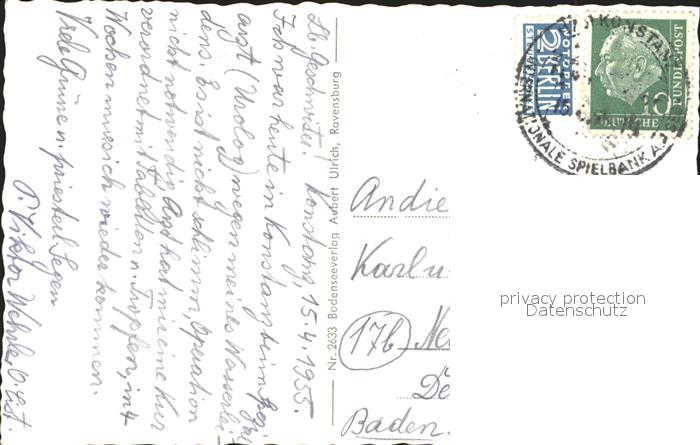 Lb. Geschwister! Konstanz, 15.4.1955.
Ich war heute in Konstanz beim Spezial
arzt (Urolog) wegen meines Wasserlei-
dens. Es ist nicht schlimm, Operation
nicht notwendig. Arzt hat mir eine Kur
verordnet mit Tabletten u. Tropfen, in 4
Wochen muss ich wieder kommen.
Viele Grüsse u. priesterl. Segen
P. Viktor
Nr. 2633 Bodenseeverlag Aubert Ulrich, Ravensburg
NOTOPFER
2 BERLIN
STEUERMARKE
DEUTSCHE
BUNDESPOST
10
KONSTANZ
INTERNATIONALE SPIELBANK
An die
Karl u.
(17b) Ne
Baden.
privacy protection
Datenschutz